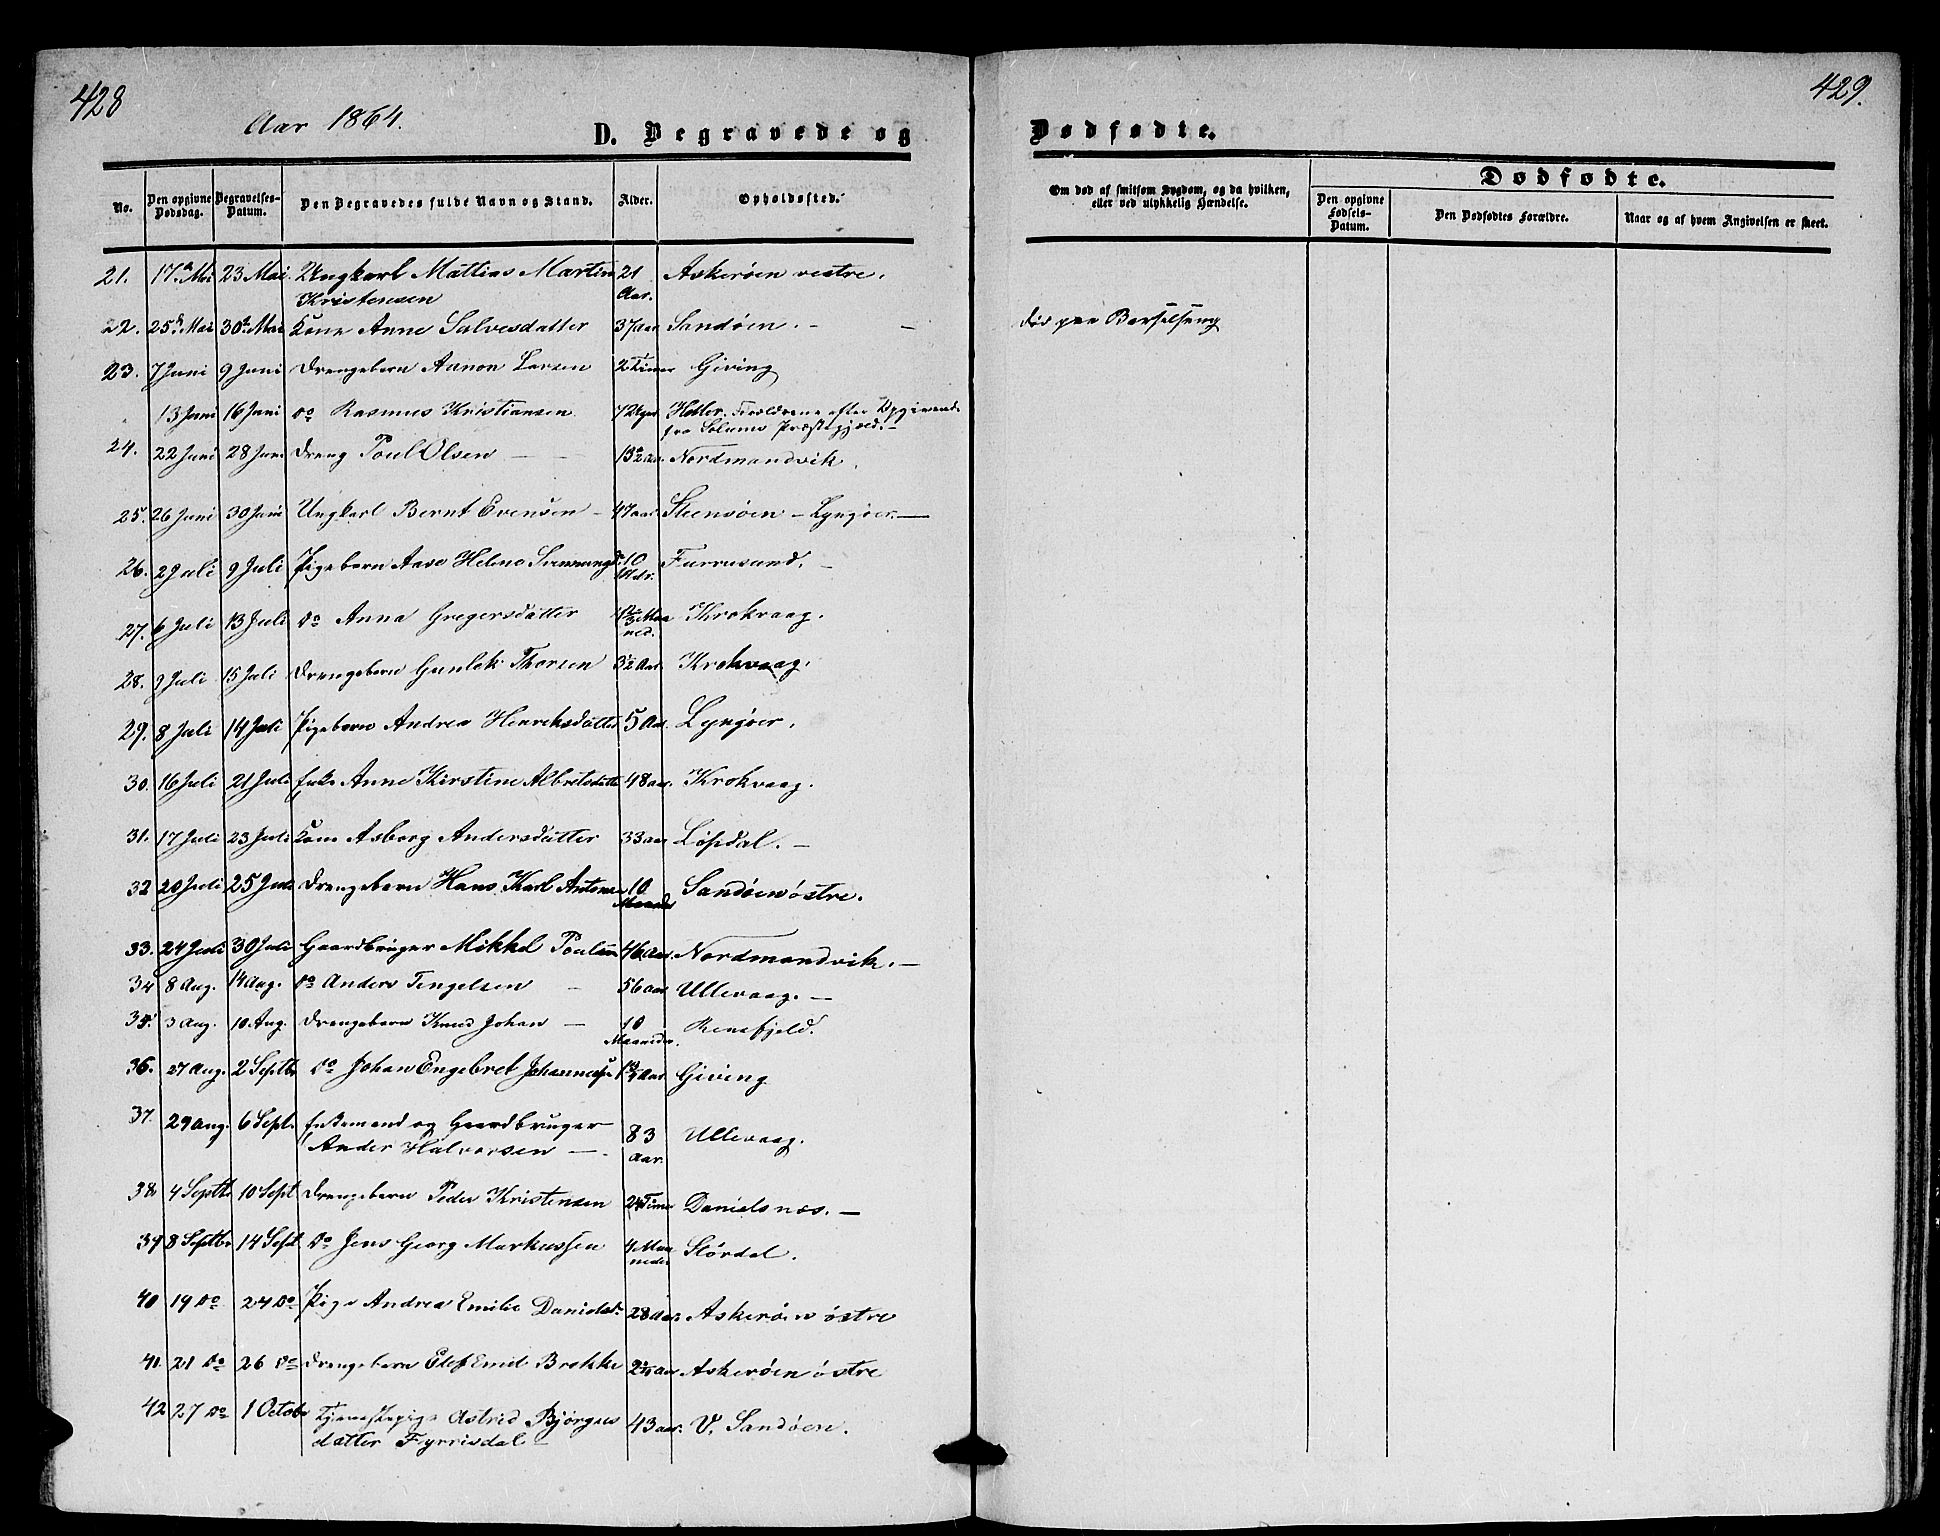 428
Aar 1864.
D. Begravede og
No.
Den opgivne Dødsdag.
Begravelses-Datum.
Den Begravedes fulde Navn og Stand.
Alder.
Opholdssted.
21. 17de Mai 23 Mai Ungkarl Mattias Martin 21 Askerøen vestre.
Kristensen Aar.
22. 25de Mai 30te Mai Kone Anne Salvesdatter 37 aar Sandøen. - -
23. 7 Juni 9 Juni Drengebarn Aanon Larsen 2 Timer Giving
13 Juni 16 Juni do Rasmus Kristiansen 7 Uger Forældrene efter Opgivende
fra Solums Præstegjæld. -
24. 22 Juni 28 Juni Dreng Poul Olsen - - Nordmandvik.
25. 26 Juni 30 Juni Ungkarl Bernt Evensen - 47 aar Steensøen - Lyngøer. -
26. 2 Juli 9 Juli Pigebarn Aase Helene 10 Furrusund. -
27. 6 Juli 13 Juli do Anna Gregersdatter Maa Krokvaag.
ned.
28. 9 Juli 15 Juli Drengebarn Gunlek Thorsen 3½ Aar Krokvaag.
29. 8 Juli 14 Juli Pigebarn Andrea Henriksdatter 5 Aar. Lyngøer.
30. 16 Juli 21 Juli Enke Anne Kirstine Albretsdatter 48 aar. Krokvaag.
31. 17 Juli 23 Juli Kone Asborg Andersdatter 33 aar Løfsdal. -
32 20 Juli 25 Juli Drengebarn Hans Karl Antonsen 10 Sandøen østre.
Maaneder
33. 24 Juli 30 Juli Gaardbruger Mikkel Poulsen 46 Aar. Nordmandvik. -
34 8 Aug. 14 Aug. do Anders Tengelsen - 56 aar Ullevaag. -
35. 3 Aug. 10 Aug. Drengebarn Knud Johan - 10 Renefjeld.
Maaneder.
36. 27 Aug. 2 Septbr do Johan Engebret Johannesen Aar Giving
37. 29 Aug. 6 Sept. Enkemand og Gaardbruger 83 Ullevaag.
Ander Halvorsen - aar.
38 4 Septbr 10 Sept Drengebarn Peder Kristensen 24 Timer Danielsnæs. -
39 8 Septbr 14 Sept do Jens Georg Markussen 4 Maa Størdal.
neder
40 19 do 24 do Pige Andrea Emilie Danielsdr 28 Aar Askerøen østre
41. 21 do 26 do Drengebarn Elef Emil Brekke Aar Askerøen østre
42 27 do 1 Octobr Tjenestepige Astrid Bjørgus 43 aar. V. Sandøen.
datter Fyrrisdal -
429.
Dødfødte.
Om død af smitsom Sygdom, og da hvilken,
eller ved ulykkelig Hændelse.
Dødfødte.
Den opgivne Fødsels-Datum.
Den Dødfødtes Forældre.
Naar og af hvem Angivelsen er skeet.
død paa Barselseng